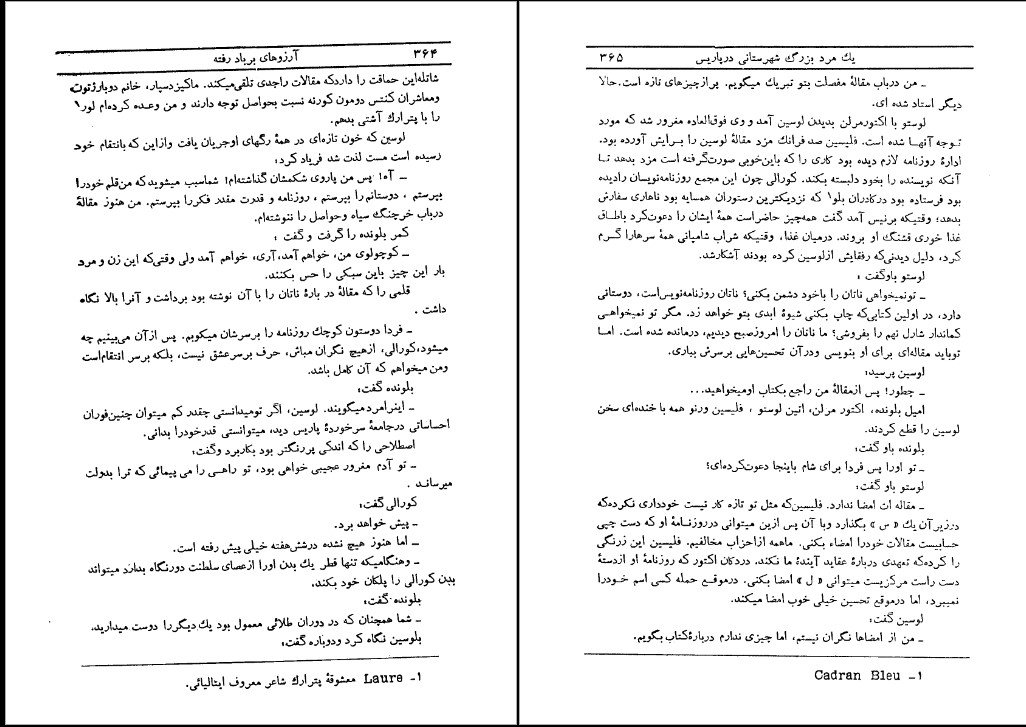 ۳۶۴ آرزوهای برباد رفته
شاتله‌این حماقت را داردکه مقالات راجدی تلقی‌میکند. ماکیزدسپار، خانم دوبارژتون
ومعاشران کنتس دومون کورنه نسبت بحواصل توجه دارند و من وعده کرده‌ام لور۱
را با پترارك آشتی بدهم.
لوسین که خون تازه‌ای در همهٔ رگهای اوجریان یافت وازاین که بانتقام خود
رسیده است مست لذت شد فریاد کرد؛
ــ آه! پس من پاروی شکمشان گذاشته‌ام! شماسبب میشوید که من‌قلم خودرا
بپرستم ، دوستانم را بپرستم ، روزنامه و قدرت مقدر فکررا بپرستم. من هنوز مقالهٔ
درباب خرچنگ سیاه وحواصل را ننوشته‌ام.
کمر بلونده را گرفت و گفت ؛
ــ کوچولوی من، خواهم آمد،آری، خواهم آمد ولی وقتی‌که این زن و مرد
بار این چیز باین سبکی را حس بکنند.
قلمی را که مقاله در بارهٔ ناتان را با آن نوشته بود برداشت و آنرا بالا نگاه
داشت .
ــ فردا دوستون کوچك روزنامه را برسرشان میکوبم. پس ازآن می‌بینیم چه
میشود،کورالی، ازهیچ نگران مباش، حرف برسرعشق نیست، بلکه برسر انتقام‌است
ومن میخواهم که آن کامل باشد.
بلونده گفت؛
ــ اینرامردمیگویند. لوسین، اگر تومیدانستی چقدر کم میتوان چنین‌فوران
احساساتی درجامعهٔ سرخوردهٔ پاریس دید، میتوانستی قدرخودرا بدانی.
اصطلاحی را که اندکی پررنگتر بود بکاربرد وگفت؛
ــ تو آدم مغرور عجیبی خواهی بود، تو راهــی را می پیمائی که ترا بدولت
میرساند .
کورالی گفت؛
ــ پیش خواهد برد.
ــ اما هنوز هیچ نشده درشش‌هفته خیلی پیش رفته است.
ــ وهنگامیکه تنها قطر یك بدن اورا ازعصای سلطنت دورنگاه بدارد میتواند
بدن کورالی را پلکان خود بکند.
بلونده گفت؛
ــ شما همچنان که در دوران طلائی معمول بود یك دیگررا دوست میدارید.
بلوسین نگاه کرد ودوباره گفت؛
۱ــ Laure معشوقهٔ پترارك شاعر معروف ایتالیائی.
یك مرد بزرگ شهرستانی درپاریس ۳۶۵
ــ من درباب مقالهٔ مفصلت بتو تبریك میگویم. پرازچیزهای تازه است.حالا
دیگر استاد شده ای.
لوستو با اکتورمرلن بدیدن لوسین آمد و وی فوق‌العاده مغرور شد که مورد
توجه آنهــا شده است. فلیسین صد فرانك مزد مقالهٔ لوسین را برایش آورده بود.
ادارهٔ روزنامه لازم دیده بود کاری را که باین‌خوبی صورت‌گرفته است مزد بدهد تــا
آنکه نویسنده را بخود دلبسته بکند. کورالی چون این مجمع روزنامه‌نویسان رادیده
بود فرستاده بود درکادران بلو۱ که نزدیکترین رستوران همسایه بود ناهاری سفارش
بدهد؛ وقتیکه برنیس آمد گفت همه‌چیز حاضراست همهٔ ایشان را دعوت‌کرد باطاق
غذا خوری قشنگ او بروند. درمیان غذا، وقتیکه شراب شامپانی همهٔ سرهارا گــرم
کرد، دلیل دیدنی‌که رفقایش ازلوسین کرده بودند آشکارشد.
لوستو باوگفت ؛
ــ تونمیخواهی ناتان را باخود دشمن بکنی؟ ناتان روزنامه‌نویس‌است، دوستانی
دارد، در اولین کتابی‌که چاپ بکنی شیوهٔ ابدی بتو خواهد زد. مگر تو نمیخواهــی
کماندار شارل نهم را بفروشی؟ ما ناتان را امروزصبح دیدیم، درمانده شده است. امــا
توباید مقاله‌ای برای او بنویسی ودرآن تحسین‌هایی برسرش بباری.
لوسین پرسید؛
ــ چطور؛ پس ازمقالهٔ من راجع بکتاب اومیخواهید...
امیل بلونده، اکتور مرلن، اتین لوستو ، فلیسین ورنو همه با خنده‌ای سخن
لوسین را قطع کردند.
بلونده باو گفت؛
ــ تو اورا پس فردا برای شام باینجا دعوت‌کرده‌ای؛
لوستو باو گفت؛
ــ مقاله ات امضا ندارد. فلیسین‌که مثل تو تازه کار نیست خودداری نکرده‌که
درزیرآن یك « س » بگذارد وبا آن پس ازین میتوانی درروزنــامهٔ او که دست چپی
حسابیست مقالات خودرا امضاء بکنی. ماهمه ازاحزاب مخالفیم. فلیسین این زرنگی
را کرده‌که تعهدی دربارهٔ عقاید آیندهٔ ما نکند. دردکان اکتور که روزنامهٔ او ازدستهٔ
دست راست مرکزیست میتوانی « ل » امضا بکنی. درموقع حمله کسی اسم خودرا
نمیبرد، اما درموقع تحسین خیلی خوب امضا میکند.
لوسین گفت؛
ــ من از امضاها نگران نیستم، اما چیزی ندارم دربارهٔ‌کتاب بگویم.
۱ــ Cadran Bleu